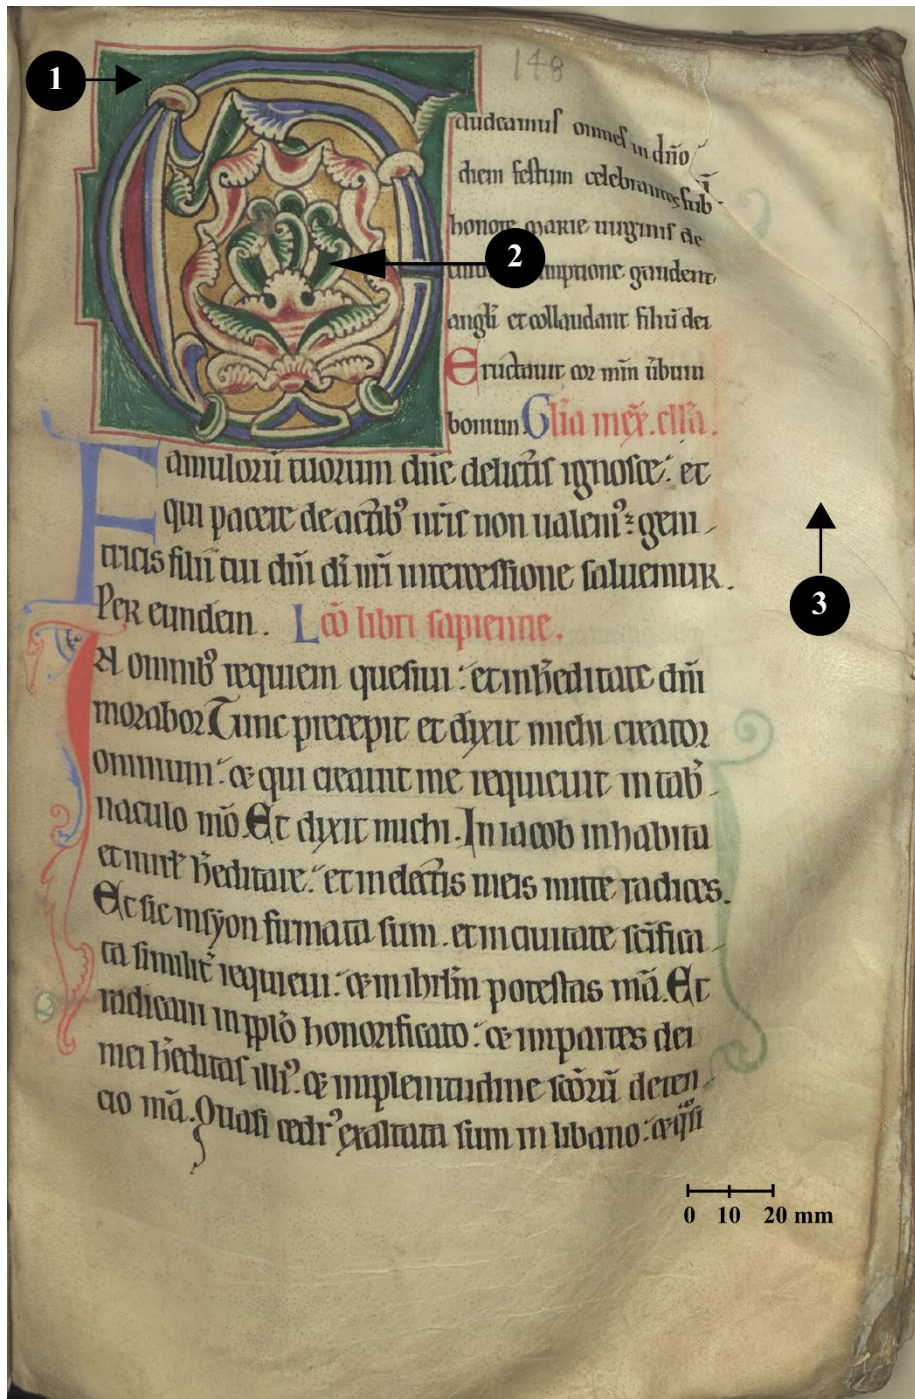 1
148
Gaudeamus omnes in dño
diem festum celebrantes sub
honore marie uirginis de
2
gaudent
angli et collaudant filiū dei
Eructauit cor mm̄ ūbum
bonum Glīa
Famulorū tuorum dñe delictis ignosce: et
qui placere de actib⁹ nr̄is non ualem⁹: geni
tricis filii tui dn̄i dī nr̄i intercessione saluemur.
3
Per eundem. Lc̄o libri sapientie.
IN omnib⁹ requiem quesiui: et in h̄editate dn̄i
morabor Tunc precepit et dixit michi creator
omnium: & qui creauit me requieuit in tab̄
naculo mō. Et dixit michi. In iacob inhabita
et in isr̄l h̄editare: et in electis meis mitte radices.
Et sic in syon firmata sum. et in ciuitate sc̄ifica
ta similit̄ requieui: & in ihrl̄m potestas mā. Et
radicaui in pp̄lo honorificato: & in partes dei
mei h̄editas illi⁹: & in plenitudine sc̄orū deten
cio mā. Quasi cedr⁹ exaltata sum in libano: & q̄si
0 10 20 mm